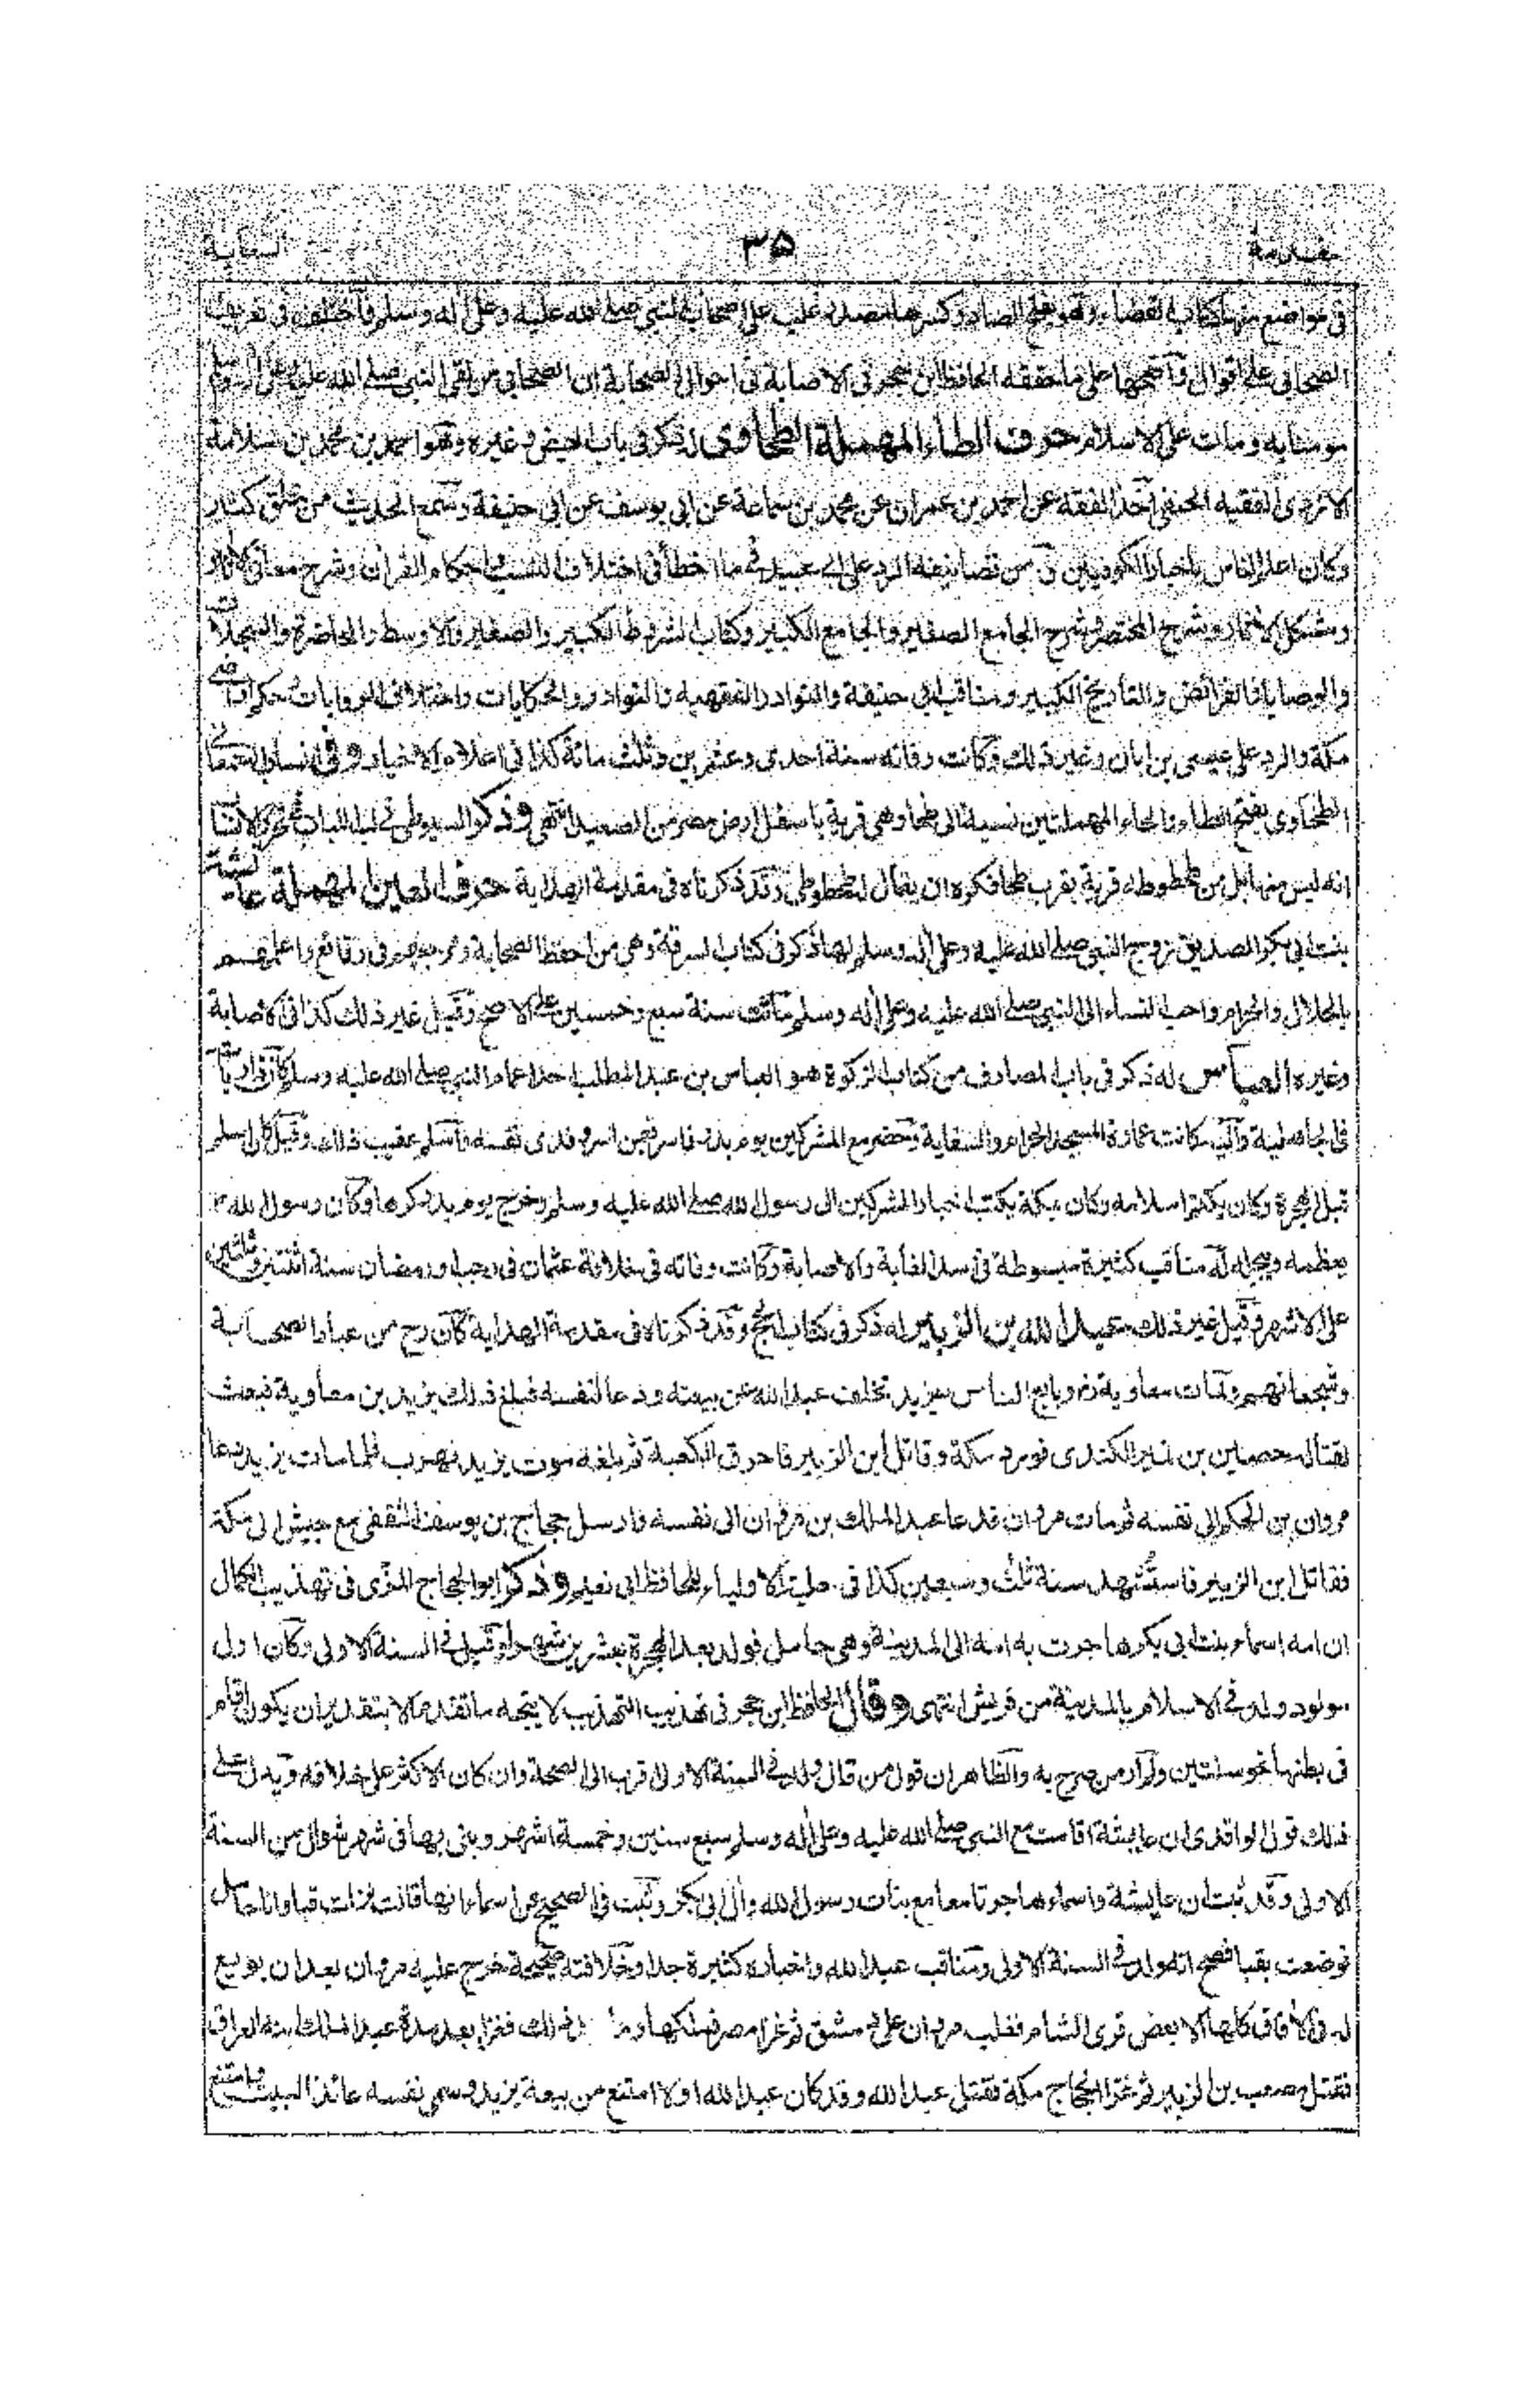 مقدمة ٣٥ السعاية
فى مواضع منها كتاب القضاء وهو بفتح الصاد وكسرها مصدر غلب على اصحاب النبى صلى الله عليه وعلى اله وسلم فاختلف فى تعريف
الصحابى على اقوال واصحها على ما حققه الحافظ ابن حجر فى الاصابة فى احوال الصحابة ان الصحابى من لقى النبى صلى الله عليه وعلى اله وسلم
مومنا به ومات على الاسلام حرف الطاء المهملة الطحاوى له ذكر فى باب الحيض وغيره وهو احمد بن محمد بن سلامة
الازدى الفقيه الحنفى اخذ الفقه عن احمد بن عمران عن محمد بن سماعة عن ابى يوسف عن ابى حنيفة وسمع الحديث من خلق كثير
وكان اعلم الناس باخبار الكوفيين ومن تصانيفه الرد على ابى عبيد فى ما اخطأ فى اختلاف النسب واحكام القرآن وشرح معانى الآثار
ومشكل الآثار وشرح المختصر وشرح الجامع الصغير والجامع الكبير وكتاب الشروط الكبير والصغير والاوسط والمحاضر والسجلات
والوصايا والفرائض والتأريخ الكبير ومناقب ابى حنيفة والنوادر الفقهية والنوادر والحكايات واختلاف الروايات وحكم اراضى
مكة والرد على عيسى بن ابان وغير ذلك وكانت وفاته سنة احدى وعشرين وثلث مائة كذا فى اعلام الاخيار وفى انساب السمعانى
الطحاوى بفتح الطاء والحاء المهملتين نسبة الى طحا وهى قرية باسفل ارض مصر من الصعيد انتهى وذكر السيوطى فى لب اللباب تحرير الانساب
انه ليس منها بل من طحطوطه قرية بقرب طحا فكره ان يقال طحطوطى وقد ذكرناه فى مقدمة الهداية حرف العين المهملة عائشة
بنت ابى بكر الصديق زوج النبى صلى الله عليه وعلى اله وسلم لها ذكر فى كتاب السرقة وهى من احفظ الصحابة واعلمهم
بالحلال والحرام واحب النساء الى النبى صلى الله عليه وعلى اله وسلم ماتت سنة سبع وخمسين على الاصح وقيل غير ذلك كذا فى الاصابة
وغيره العباس له ذكر فى باب المصارف من كتاب الزكوة هو العباس بن عبد المطلب احد اعمام النبى صلى الله عليه وسلم كان رئيسا
فى الجاهلية واليه كانت عمارة المسجد الحرام والسقاية وحضر مع المشركين يوم بدر فاسر فيمن اسر وفدى نفسه واسلم عقيب ذلك وقيل كان اسلم
قبل الهجرة وكان يكتم اسلامه وكان بمكة يكتب اخبار المشركين الى رسول الله صلى الله عليه وسلم وخرج يوم بدر مكرها وكان رسول الله
يعظمه ويجله له مناقب كثيرة مبسوطة فى اسد الغابة والاصابة وكانت وفاته فى خلافة عثمان فى رجب او رمضان سنة اثنتين وثلثين
على الاشهر وقيل غير ذلك عبد الله بن الزبير له ذكر فى كتاب الحج وقد ذكرناه فى مقدمة الهداية كان رح من عباد الصحابة
وشجعانهم ولما مات معاوية رض وبايع الناس يزيد تخلف عبد الله عن بيعته ودعا لنفسه فبلغ ذلك يزيد بن معاوية فبعث
لقتاله حصين بن نمير الكندى فورد مكة وقاتل ابن الزبير فاحرق الكعبة ثم بلغه موت يزيد فهرب فلما مات يزيد دعا
مروان بن الحكم الى نفسه ثم مات مروان فدعا عبد الملك بن مروان الى نفسه وارسل حجاج بن يوسف الثقفى مع جيش الى مكة
فقاتل ابن الزبير فاستشهد سنة ثلث وسبعين كذا فى حلية الاولياء للحافظ ابى نعيم وذكر ابو الحجاج المزى فى تهذيب الكمال
ان امه اسماء بنت ابى بكر هاجرت به امه الى المدينة وهى حامل فولد بعد الهجرة بعشرين شهرا وقيل فى السنة الاولى وكان اول
مولود ولد فى الاسلام بالمدينة من قريش انتهى وقال الحافظ ابن حجر فى تهذيب التهذيب لا يتجه ما تقدم الا بتقدير ان يكون اقام
فى بطنها نحو سنتين ولم ار من صرح به والظاهر ان قول من قال ولد فى السنة الاولى اقرب الى الصحة وان كان الاكثر على خلافه ويدل على
ذلك قول الواقدى ان عايشة اقامت مع النبى صلى الله عليه وعلى اله وسلم سبع سنين وخمسة اشهر وبنى بها فى شهر شوال من السنة
الاولى وقد ثبت ان عايشة واسماء هاجرتا معا مع بنات رسول الله وال ابى بكر وثبت فى الصحيح عن اسماء انها قالت نزلت قبا وانا حامل
فوضعت بقبا فصح انه ولد فى السنة الاولى ومناقب عبد الله واخباره كثيرة جدا وخلافته صحيحة خرج عليه مروان بعد ان بويع
له فى الآفاق كلها الا بعض قرى الشام فغلب مروان على دمشق ثم غزا مصر فملكها ومات بعد ذلك فغزا بعد مدة عبد الملك ابنه العراق
فقتل مصعب بن الزبير ثم غزا الحجاج مكة فقتل عبد الله وقد كان عبد الله اولا امتنع من بيعة يزيد وسمى نفسه عائذ البيت وامتنع